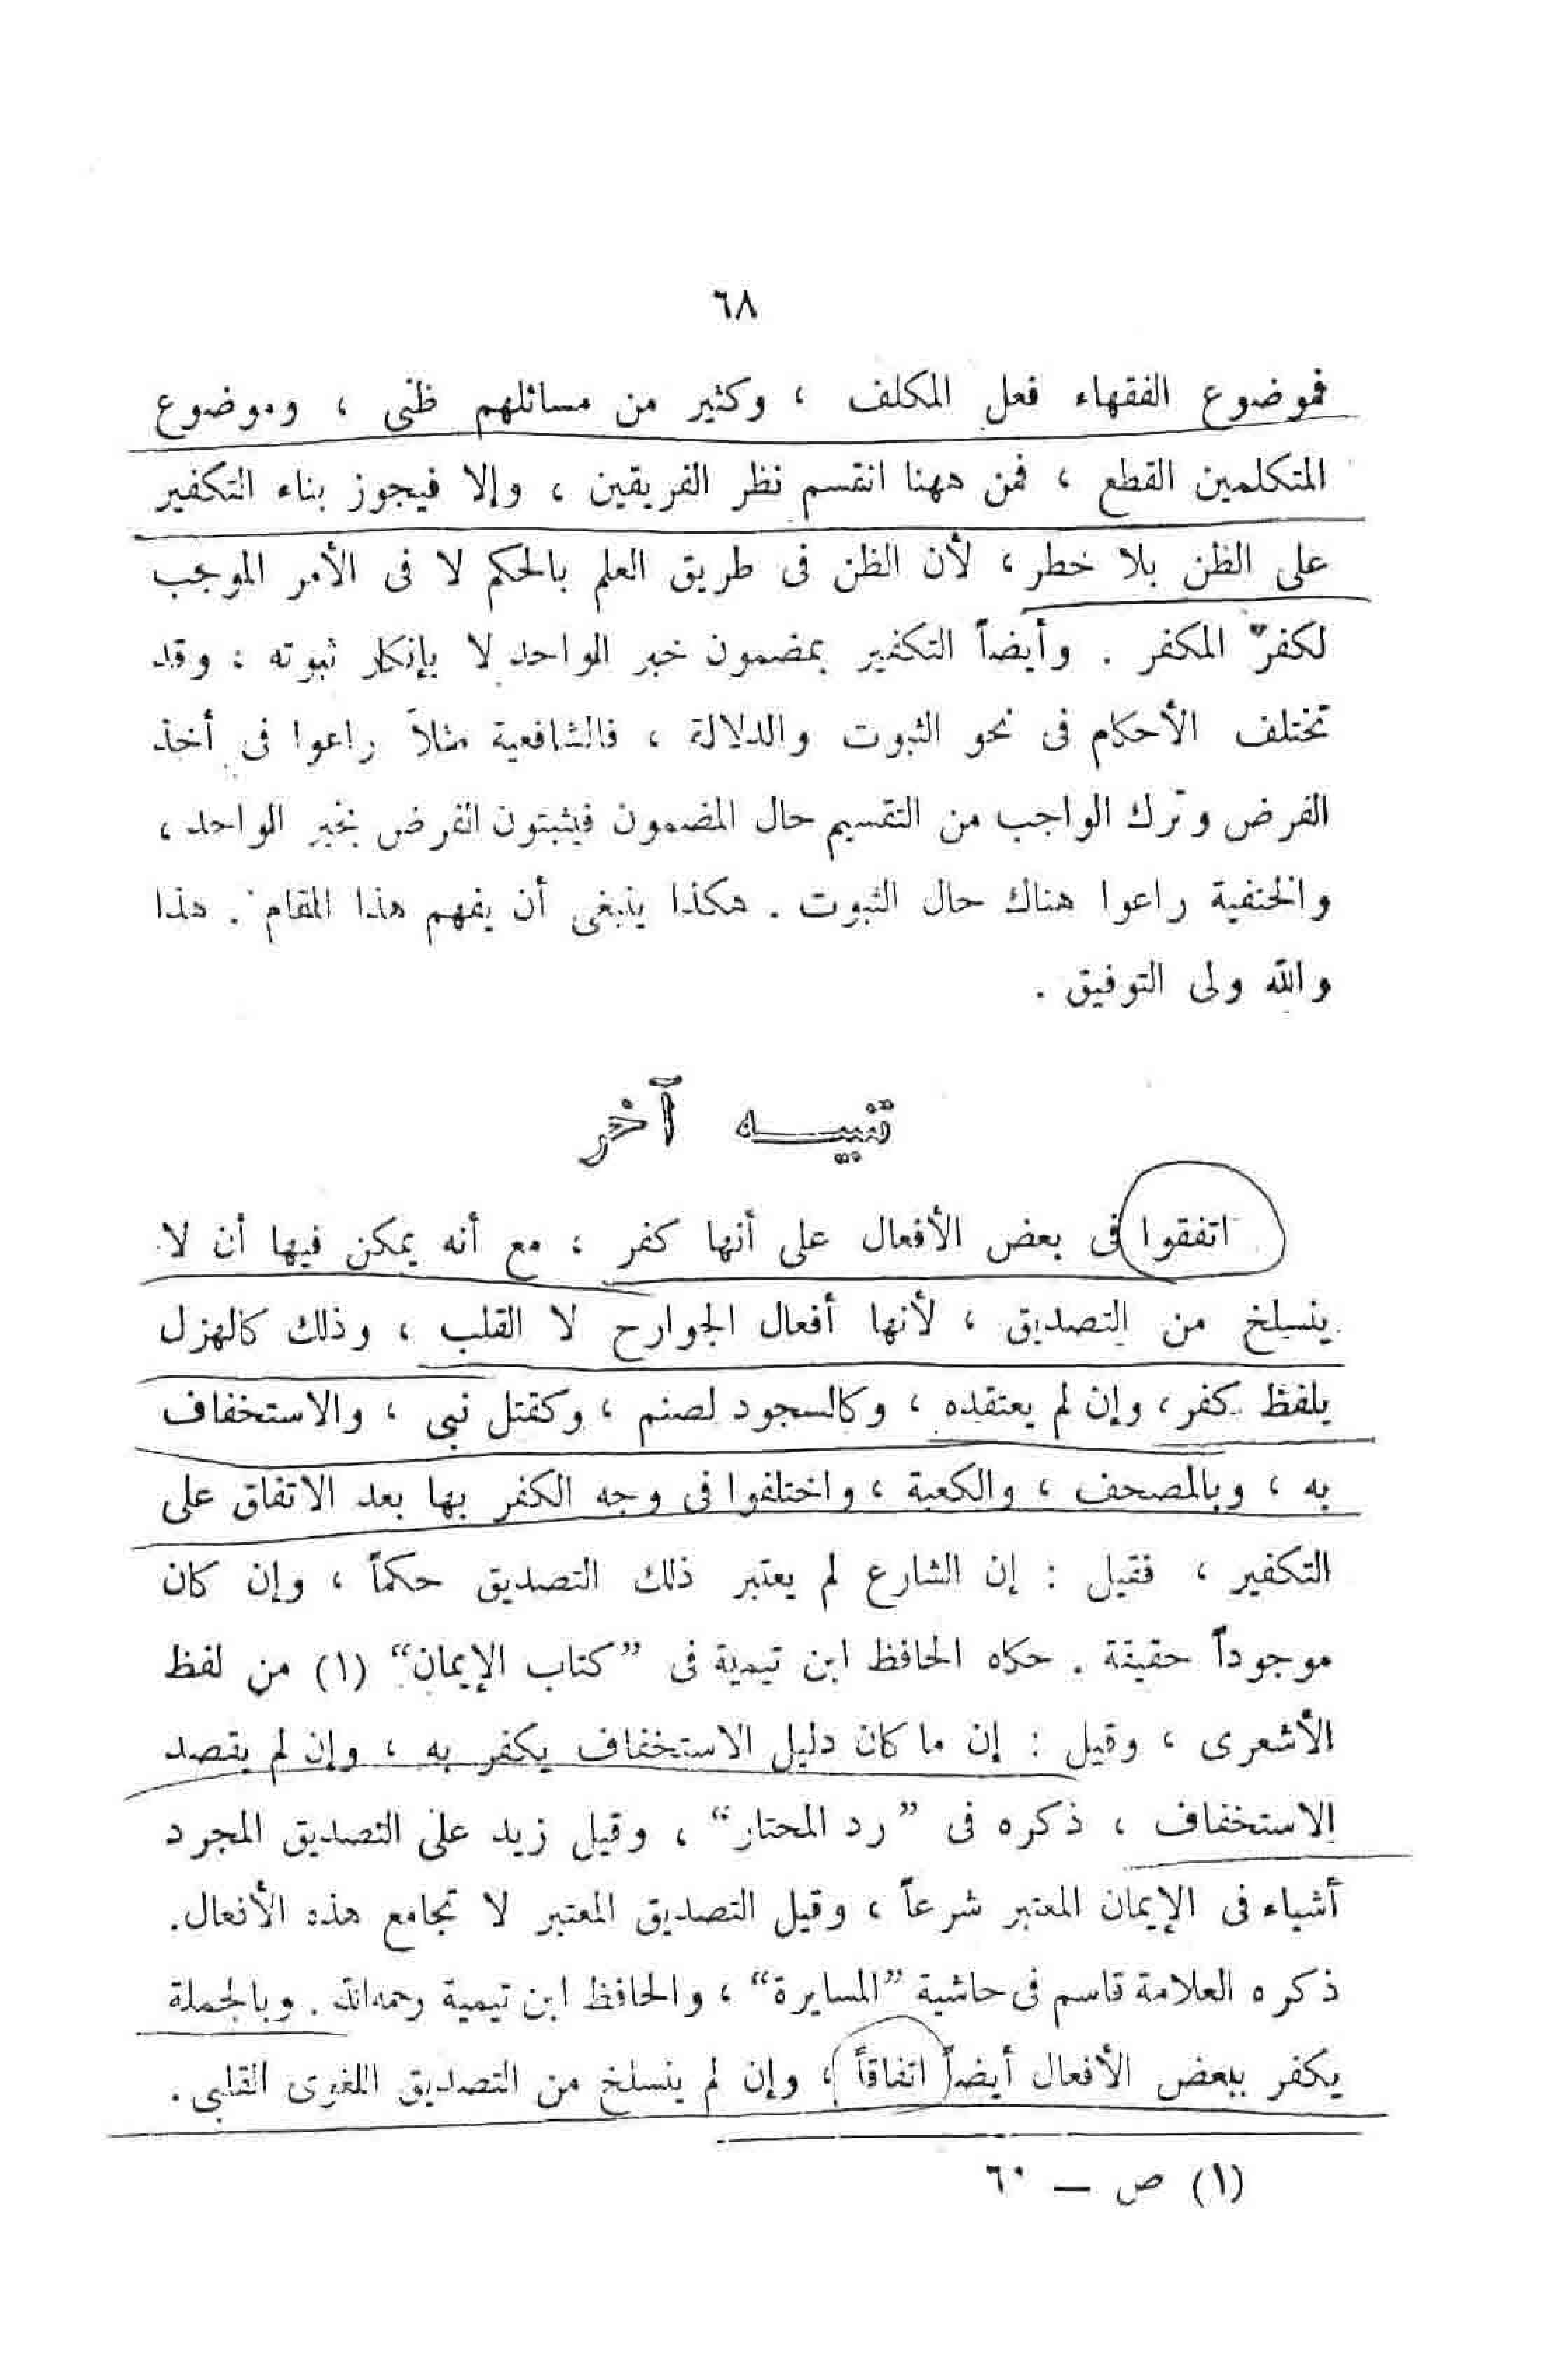 ٦٨
فموضوع الفقهاء فعل المكلف ، وكثير من مسائلهم ظنى ، وموضوع
المتكلمين القطع ، فمن ههنا انقسم نظر الفريقين ، وإلا فيجوز بناء التكفير
على الظن بلا خطر ، لأن الظن فى طريق العلم بالحكم لا فى الأمر الموجب
لكفر المكفر . وأيضاً التكفير بمضمون خبر الواحد لا بإنكار ثبوته ؛ وقد
تختلف الأحكام فى نحو الثبوت والدلالة ، فالشافعية مثلاً راعوا فى أخذ
الفرض وترك الواجب من التقسيم حال المضمون فيثبتون الفرض بخبر الواحد ،
والحنفية راعوا هناك حال الثبوت . هكذا ينبغى أن يفهم هذا المقام . هذا
والله ولى التوفيق .
تنبيـه آخر
اتفقوا فى بعض الأفعال على أنها كفر ؛ مع أنه يمكن فيها أن لا
ينسلخ من التصديق ، لأنها أفعال الجوارح لا القلب ، وذلك كالهزل
بلفظ كفر ، وإن لم يعتقده ، وكالسجود لصنم ، وكقتل نبى ، والاستخفاف
به ، وبالمصحف ، والكعبة ، واختلفوا فى وجه الكفر بها بعد الاتفاق على
التكفير ، فقيل : إن الشارع لم يعتبر ذلك التصديق حكماً ، وإن كان
موجوداً حقيقة . حكاه الحافظ ابن تيمية فى ”كتاب الإيمان“ (١) من لفظ
الأشعرى ، وقيل : إن ما كان دليل الاستخفاف يكفر به ، وإن لم يقصد
الاستخفاف ، ذكره فى ”رد المحتار“ ، وقيل زيد على التصديق المجرد
أشياء فى الإيمان المعتبر شرعاً ، وقيل التصديق المعتبر لا تجامع هذه الأفعال.
ذكره العلامة قاسم فى حاشية ”المسايرة“ ، والحافظ ابن تيمية رحمه الله . وبالجملة
يكفر ببعض الأفعال أيضاً اتفاقاً ، وإن لم ينسلخ من التصديق اللغوى القلبى .
(١) ص — ٦٠